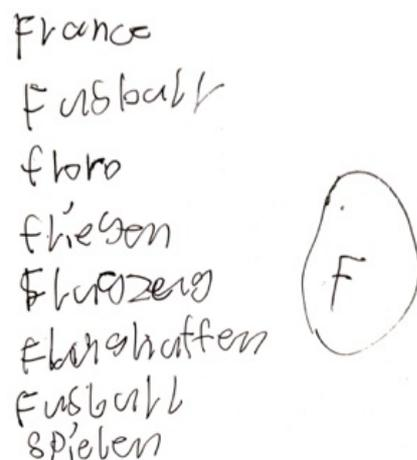 France
Fusball
floro
fliegen
Flugzeug
Flughaffen
Fusball
spielen
F